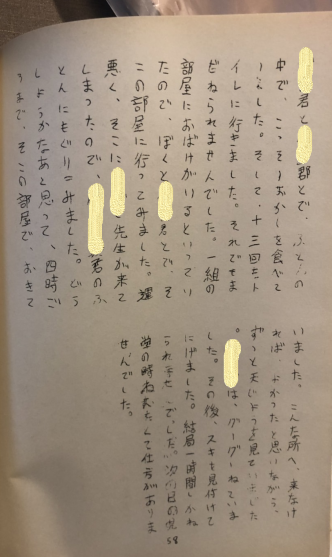 君と　郡とで、ふとんの
中で、こっそりおかしを食べて
いました。そして、十三回もト
イレに行きました。それでもま
だねられませんでした。一組の
部屋におばけがいるといってい
たので、ぼくと　君とで、そ
この部屋に行ってみました。運
悪く、そこに　先生が来て
しまったので、　君のふ
とんにもぐりこみました。どう
しようかなあと思って、四時ご
ろまで、そこの部屋で、おきて
いました。こんな所へ、来なけ
ればよかったと思いながら、
ずっと天じょうを見ていました
。　は、グーグーねていま
した。その後、スキを見付けて
にげました。結局一時間しかね
られませんでした。次の日の
の時ねむたくて仕方がありま
せんでした。
58